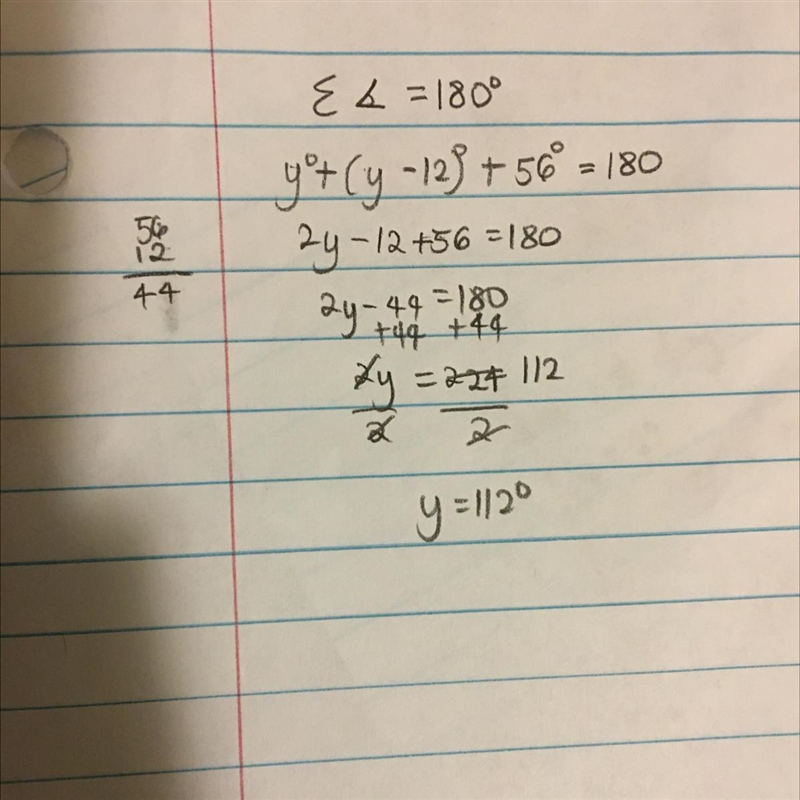 Σ ∡ = 180°
y° + (y - 12)° + 56° = 180
56
12
44
2y - 12 + 56 = 180
2y - 44 = 180
+44 +44
2y = 224 112
2 2
y = 112°